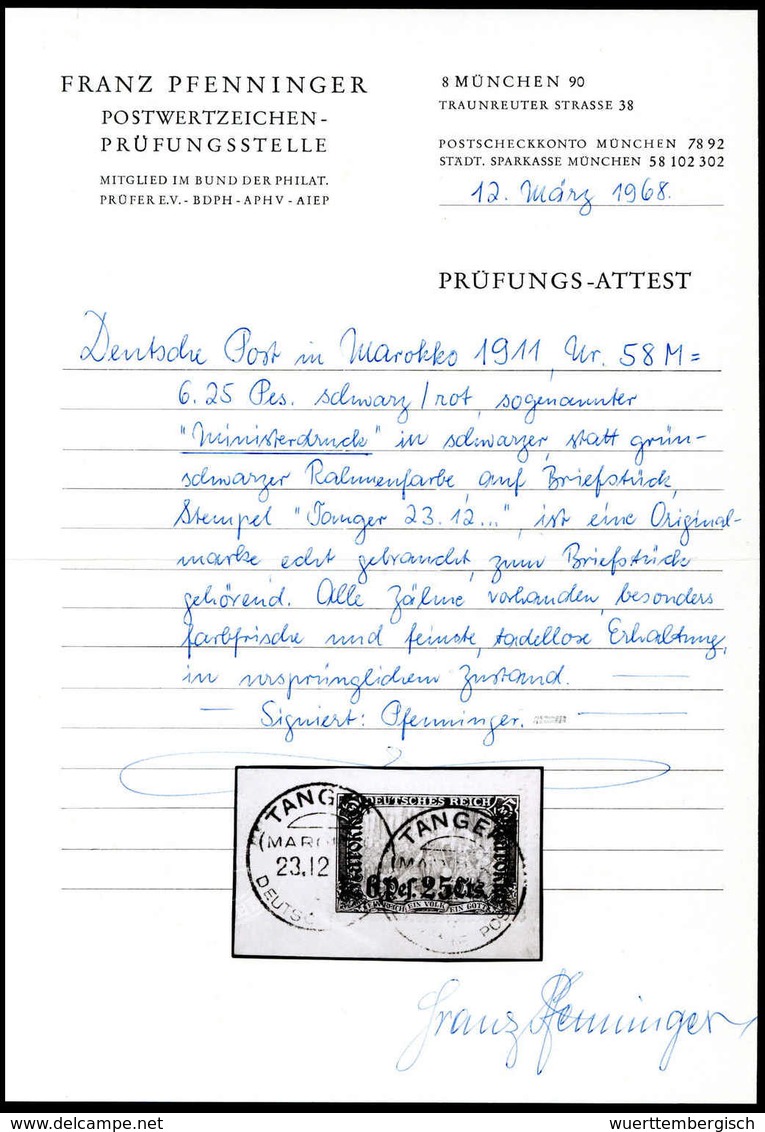 FRANZ PFENNINGER
POSTWERTZEICHEN-
PRÜFUNGSSTELLE
MITGLIED IM BUND DER PHILAT.
PRÜFER E.V. - BDPH - APHV - AIEP
8 MÜNCHEN 90
TRAUNREUTER STRASSE 38
POSTSCHECKKONTO MÜNCHEN 78 92
STÄDT. SPARKASSE MÜNCHEN 58 102 302
12. März 1968.
PRÜFUNGS-ATTEST
Deutsche Post in Marokko 1911, Nr. 58 M =
6.25 Pes. schwarz/rot, sogenannter
"Ministerdruck" in schwarzer, statt grün-
schwarzer Rahmenfarbe, auf Briefstück,
Stempel "Tanger 23.12...", ist eine Original-
marke echt gebraucht, zum Briefstück
gehörend. Alle Zähne vorhanden, besonders
farbfrische und feinste, tadellose Erhaltung,
in ursprünglichem Zustand.
Signiert: Pfenninger.
TANGE
(MARO
23.12
DEUTSC
DEUTSCHES REICH
Marokko
TANGE
(MA
6 Pes. 25 Cts.
Marokko
EIN REICH EIN VOLK EIN GOTT
POS
Franz Pfenninger
delcampe.net
wuerttembergisch